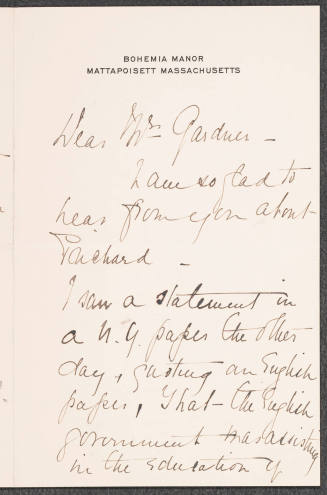 BOHEMIA MANOR
MATTAPOISETT MASSACHUSETTS
Dear Mrs Gardner –
I am so glad to
hear from you about
Prichard –
I saw a statement in
a N.Y. paper the other
day, quoting an English
paper, that the English
government was assisting
in the education of